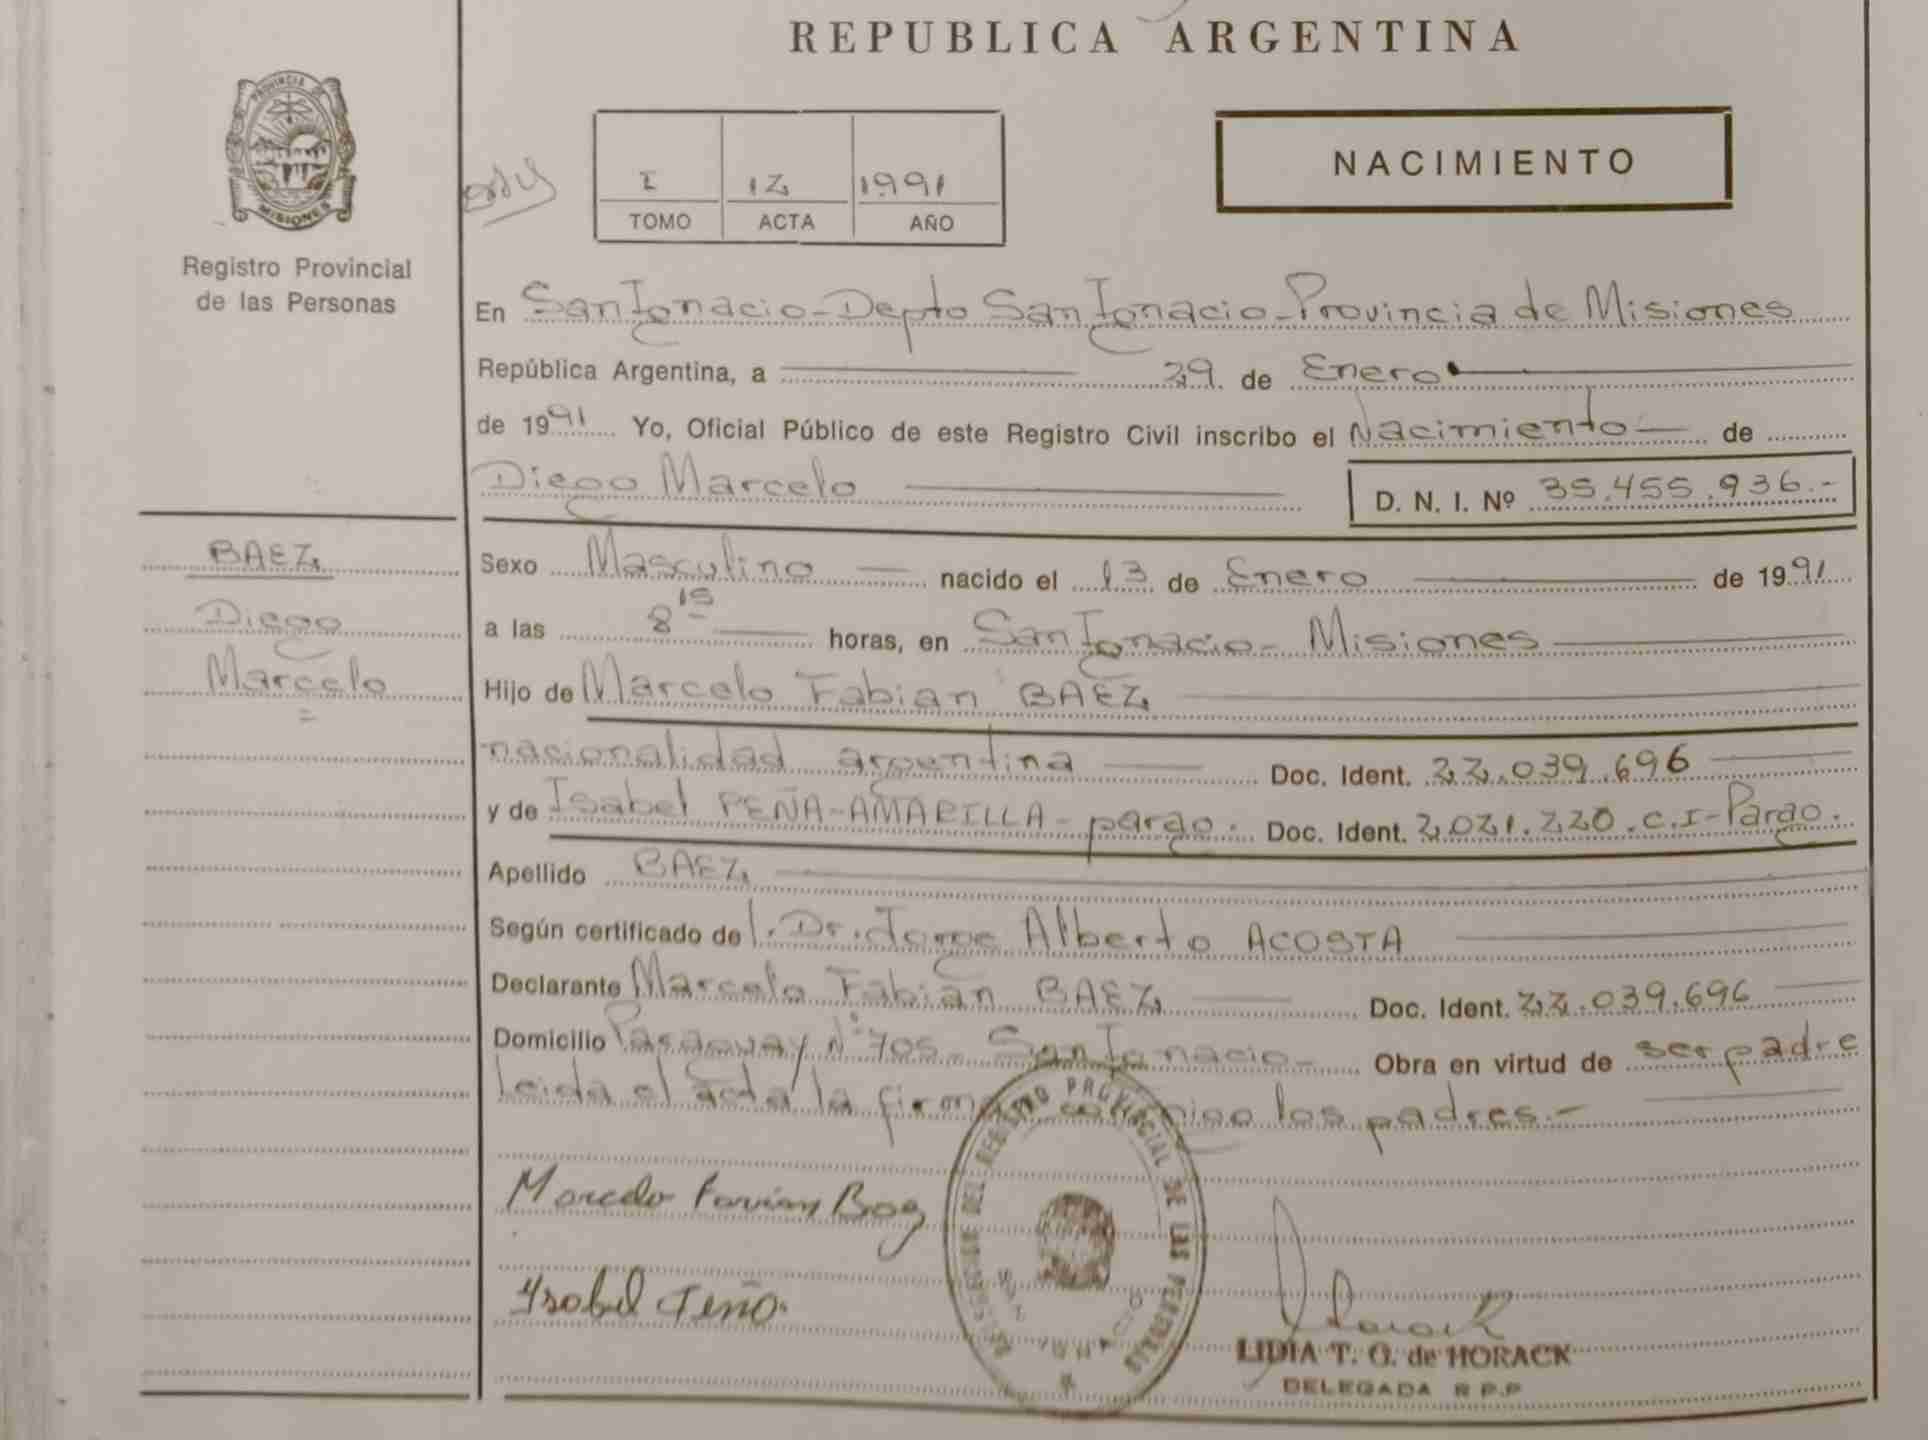 REPUBLICA ARGENTINA
PROVINCIA DE
MISIONES
Registro Provincial
de las Personas
I 12 1991
TOMO ACTA AÑO
NACIMIENTO
En San Ignacio - Depto San Ignacio - Provincia de Misiones
República Argentina, a 29 de Enero
de 1991 Yo, Oficial Público de este Registro Civil inscribo el Nacimiento de
Diego Marcelo D. N. I. Nº 35.455.936.-
BAEZ
Diego
Marcelo
Sexo Masculino nacido el 13 de Enero de 1991
a las 8 15 horas, en San Ignacio - Misiones
Hijo de Marcelo Fabian BAEZ
nacionalidad argentina Doc. Ident. 22.039.696
y de Isabel PEÑA-AMARILLA - pargo. Doc. Ident. 2.021.220.C.I-Pargo.
Apellido BAEZ
Según certificado de l. Dr. Jorge Alberto ACOSTA
Declarante Marcelo Fabian BAEZ Doc. Ident. 22.039.696
Domicilio Paraguay Nº 705 - San Ignacio - Obra en virtud de ser padre
Leida el acta la firman conmigo los padres.-
Marcelo Favian Baez
Ysabel Peña.
DEL REGISTRO PROVINCIAL DE LAS PERSONAS
LIDIA T. G. de HORACK
DELEGADA R.P.P